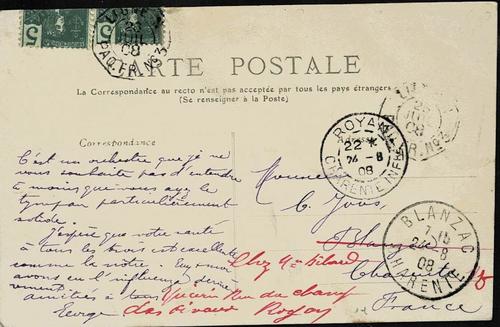 5
5
LIGNE
23
JUIL
08
PAQ. FR. N°3
CARTE POSTALE
La Correspondance au recto n'est pas acceptée par tous les pays étrangers
(Se renseigner à la Poste)
LIGNE
23
JUIL
08
PAQ. FR. N°3
Correspondance
Adresse
ROYAN
22 *
24 - 8
08
CHARENTE INFRE
C'est un orchestre que je ne
vous souhaite pas d'entendre
à moins que vous ayez le
tympan particulièrement
solide.
J'espère que votre santé
à tous les trois est excellente
comme la notre.
avons eu l'influenza
amitiés à tous
Monsieur
Blanzac
Charente
France
Chez
Rue du champ
des oiseaux Royan
BLANZAC
7 15
24 - 8
08
CHARENTE